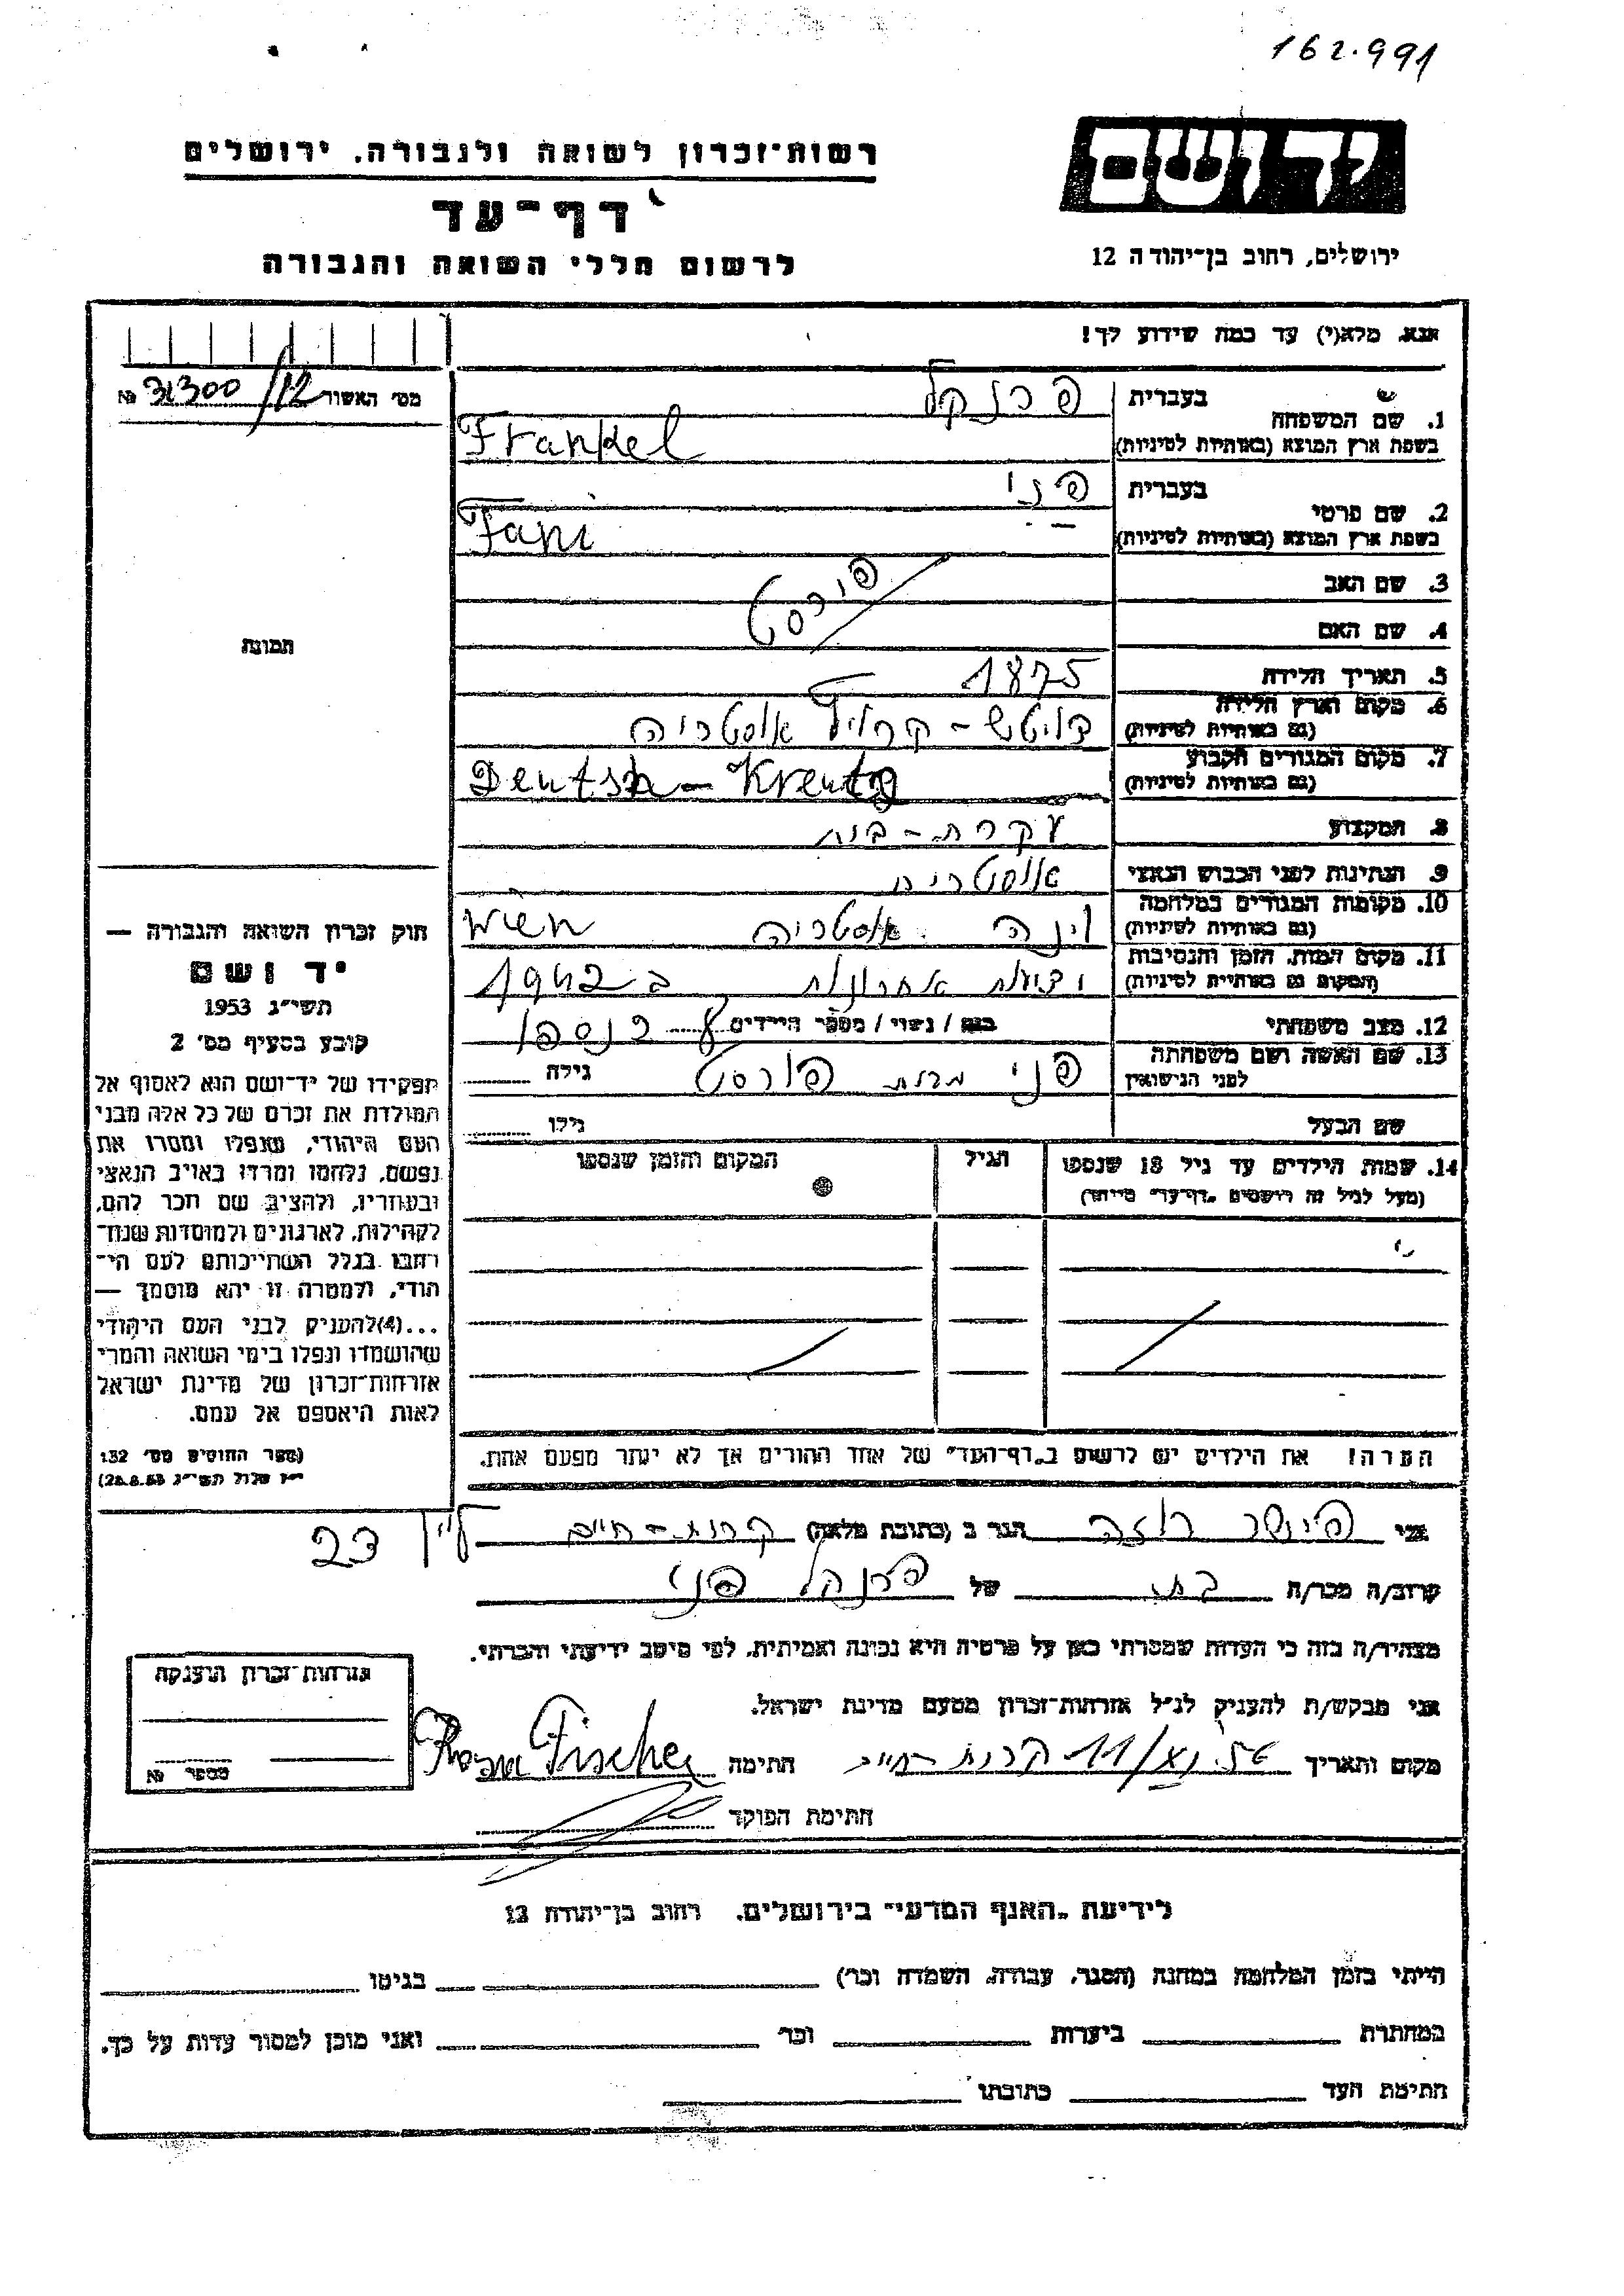 162.991
יד ושם
רשות־זכרון לשואה ולגבורה, ירושלים
דף־עד
לרשום חללי השואה והגבורה
ירושלים, רחוב בן־יהודה 12
אנא, מלא(י) עד כמה שידוע לך!
מס׳ האשור 31300/12 №
1. שם המשפחה בעברית פרנקל
בשפת ארץ המוצא (באותיות לטיניות) Frankel
2. שם פרטי בעברית פני
בשפת ארץ המוצא (באותיות לטיניות) Fani
3. שם האב
פורסט
4. שם האם
תמונה
5. תאריך הלידה 1875
6. מקום וארץ הלידה
(גם באותיות לטיניות) דויטש-קרויץ אוסטריה
7. מקום המגורים הקבוע
(גם באותיות לטיניות) Deutsh-Kreutz
8. המקצוע עקרת-בית
9. הנתינות לפני הכבוש הנאצי אוסטריה
10. מקומות המגורים במלחמה
(גם באותיות לטיניות) וינה אוסטריה Wien
11. מקום המות, הזמן והנסיבות
(המקום גם באותיות לטיניות) ידיעות אחרונות ב 1942
12. מצב משפחתי נשוי / מספר הילדים
13. שם האשה ושם משפחתה
לפני הנישואין פני מבית פורסט גילה
שם הבעל גילו
14. שמות הילדים עד גיל 18 שנספו הגיל המקום והזמן שנספו
(מעל לגיל זה רושמים „דף־עד״ מיוחד)
הערה! את הילדים יש לרשום ב„דף־העד״ של אחד ההורים אך לא יותר מפעם אחת.
חוק זכרון השואה והגבורה —
יד ושם
תשי״ג 1953
קובע בסעיף מס׳ 2
תפקידו של יד־ושם הוא לאסוף אל
המולדת את זכרם של כל אלה מבני
העם היהודי, שנפלו ומסרו את
נפשם, נלחמו ומרדו באויב הנאצי
ובעוזריו, ולהציב שם וזכר להם,
לקהילות, לארגונים ולמוסדות שנח־
רבו בגלל השתייכותם לעם הי־
הודי, ולמטרה זו יהא מוסמך —
...(4) להעניק לבני העם היהודי
שהושמדו ונפלו בימי השואה והמרי
אזרחות־זכרון של מדינת ישראל
לאות היאספם אל עמם.
(ספר החוקים מס׳ 132
י״ז אלול תשי״ג 28.8.53)
אני פישר רוזה הגר ב (כתובת מלאה) קרית-חיים
23
קרוב/ה מכר/ה בת של פרנקל פני
מצהיר/ה בזה כי העדות שמסרתי כאן על פרטיה היא נכונה ואמיתית, לפי מיטב ידיעתי והכרתי.
אני מבקש/ת להעניק לנ״ל אזרחות־זכרון מטעם מדינת ישראל.
מקום ותאריך קרית-חיים חתימה Rosa Fischer
חתימת הפוקד
אזרחות־זכרון הוענקה
מספר №
לידיעת „האגף המדעי״ בירושלים, רחוב בן־יהודה 12
הייתי בזמן המלחמה במחנה (הסגר, עבודה, השמדה וכו׳) בגיטו
במחתרת ביערות וכו׳ ואני מוכן למסור עדות על כך.
חתימת העד כתובתו